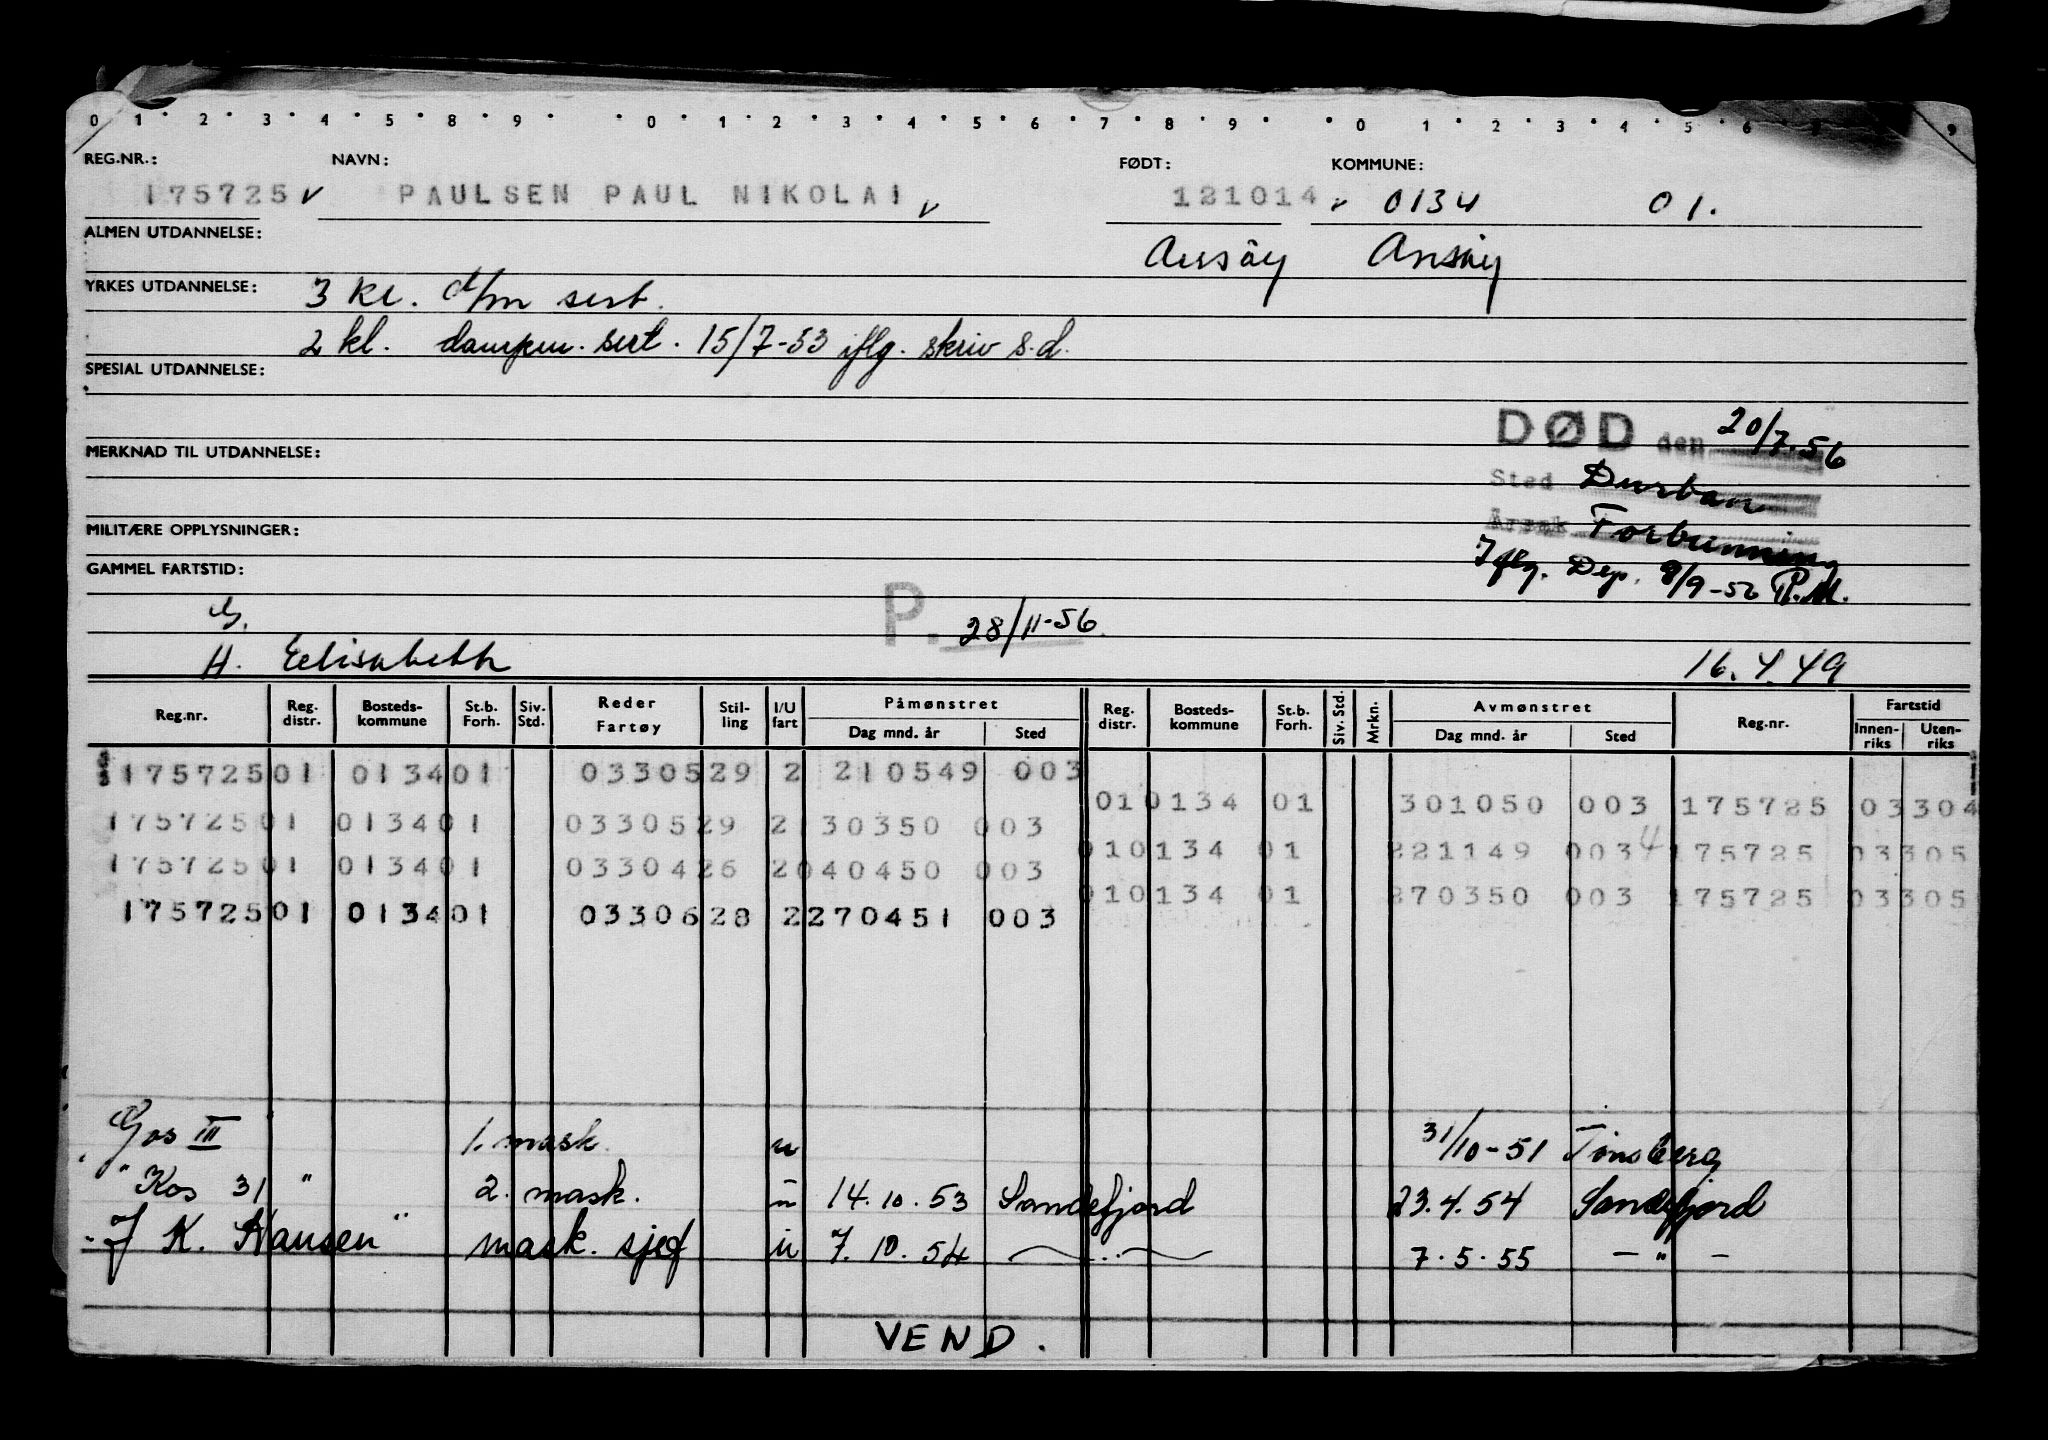 0 1 2 3 4 5 8 9 0 1 2 3 4 5 6 7 8 9 0 1 2 3 4 5 6 9
REG.NR.: NAVN: FØDT: KOMMUNE:
175725 v PAULSEN PAUL NIKOLAI v 121014 v 0134 01.
ALMEN UTDANNELSE: Ansöy
YRKES UTDANNELSE: 3 kl. d/m sert.
2 kl. dampm. sert. 15/7-53 iflg. skriv s.d.
SPESIAL UTDANNELSE:
DØD den 20/7-56
MERKNAD TIL UTDANNELSE:
Sted Durban
Årsak Forbrenning
MILITÆRE OPPLYSNINGER:
Iflg. Dep. 8/9-56 P.M.
GAMMEL FARTSTID:
P. 28/11-56
H. Elisabeth 16.4.49
Reg.nr. Reg. distr. Bosteds-kommune St.b. Forh. Siv. Std. Reder Fartøy Stil-ling I/U fart Påmønstret Dag mnd. år Sted Reg. distr. Bosteds-kommune St.b. Forh. Siv. Std. Mrkn. Avmønstret Dag mnd. år Sted Reg.nr. Fartstid Innen-riks Uten-riks
175725 01 0134 01 03305 29 2 210549 003
01 0134 01 301050 003 175725 03304
175725 01 0134 01 03305 29 2 130350 003
01 0134 01 221149 003 4 175725 03305
175725 01 0134 01 03304 26 2 040450 003
01 0134 01 270350 003 175725 03305
175725 01 0134 01 03306 28 2 270451 003
Gos III 1. mask. u 31/10-51 Tønsberg
"Kos 31" 2. mask. u 14.10.53 Sandefjord 23.4.54 Sandefjord
"J K. Hansen" mask. sjef u 7.10.54 — " — 7.5.55 — " —
VEND.